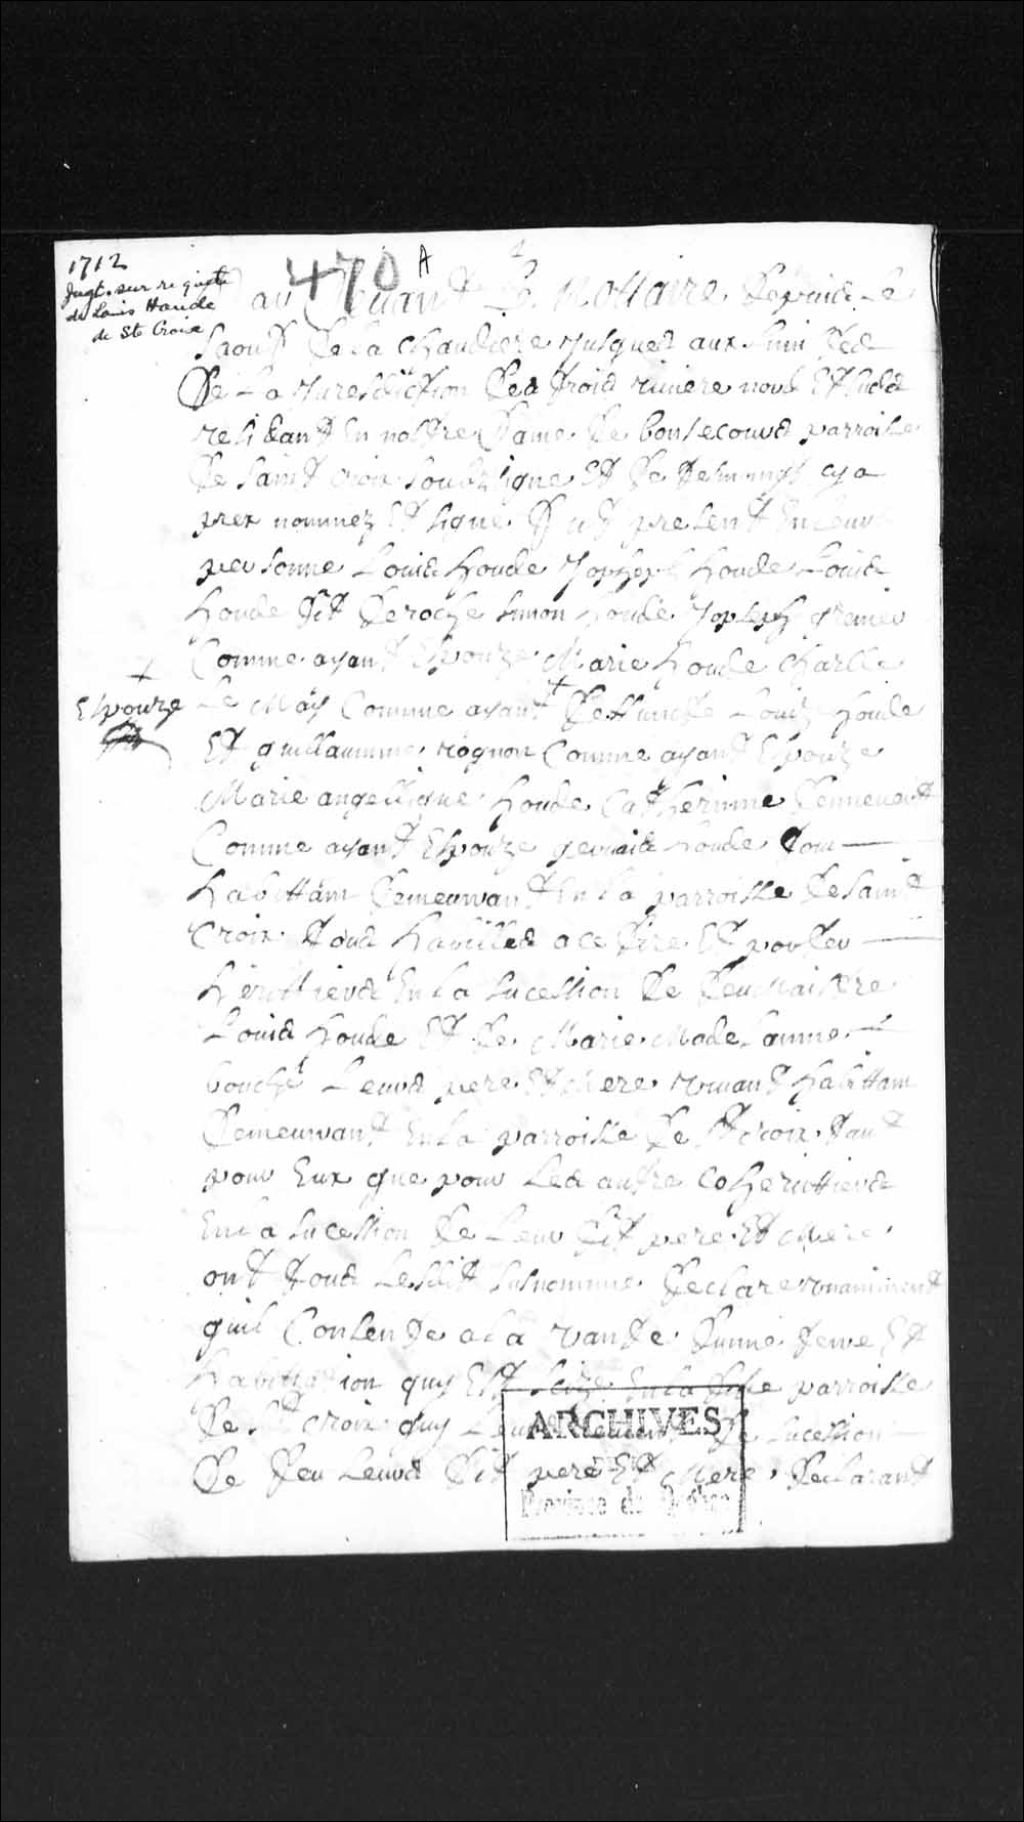 1712
Jugt. sur requête
de Louis Houde
de Ste Croix
470 A
Par devant Le nottaire Depuis Le
Saoult De La Chaudiere Jusques aux limittes
De La Juresdiction Des trois riviere nous
residant En nostre Dame De bonsecours parroisse
De Saint croix soubzigne Et De tesmings cy a
prex nommez Et signe fut present En leur
personne Louis houde Jopseph houde Louis
houde dit Deroche simon houde Jopseph grenier
Comme ayant Espouze Marie houde Charlle
Le May Comme ayant + Deffuncte Louize houde
+
Espouze
Et guillaumme rognon Comme ayant Espouze
Marie angellique houde Catherinne
Comme ayant Espouze gervais houde tous
habittans Demeurvant En La parroisse De saint
Croix tous habilles a ce dire Et porter
herittiers En La sucession De feu Maistre
Louis houde Et De Marie Madelainne
bouché Leurs pere Et Mere vivant habittans
Demeurvant En La parroisse De St croix tant
pour Eux que pour Les autre Coherittiers
En La sucession De Leur dit pere Et Mere
ont tous Lesdit susnomme Declare unanimment
quil Consente a La vande Dunne terre Et
habittation quy Est scize En La ditte parroisse
De St croix quy Leurs De sucession
De feu Leurs dit pere Et Mere Declarant
ARCHIVES
DE LA
Province de Québec